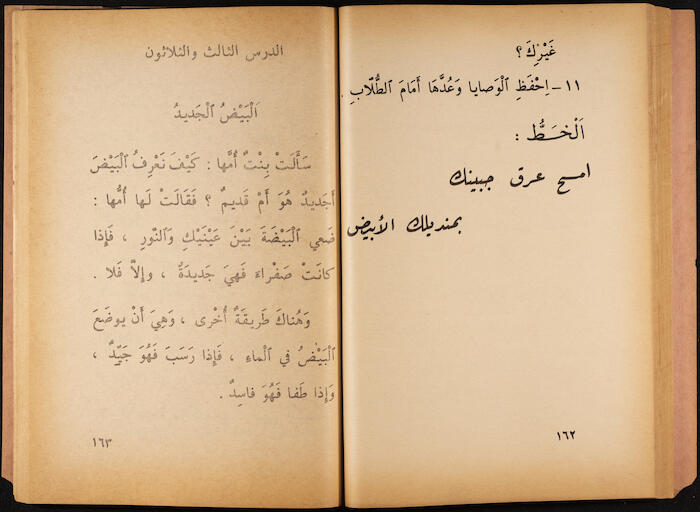 غَيْرِكَ ؟
١١ - اِحْفَظِ ٱلْوَصايا وَعُدَّهَا أَمَامَ ٱلطُّلّابِ .
اَلْخَطُّ :
امسح عرق جبينك
بمنديلك الأبيض
١٦٢
الدرس الثالث والثلاثون
اَلْبَيْضُ ٱلْجَديدُ
سَأَلَتْ بِنْتٌ أُمَّها : كَيْفَ نَعْرِفُ ٱلْبَيْضَ
أَجَديدٌ هُوَ أَمْ قَديمٌ ؟ فَقَالَتْ لَها أُمُّها :
ضَعي ٱلْبَيْضَةَ بَيْنَ عَيْنَيْكِ وَٱلنّورِ ، فَإِذا
كانَتْ صَفْراءَ فَهِيَ جَديدَةٌ ، وإِلاَّ فَلا .
وَهُناكَ طَريقَةٌ أُخْرى ، وَهِيَ أَنْ يوضَعَ
ٱلْبَيْضُ في ٱلْماءِ ، فَإِذا رَسَبَ فَهُوَ جَيِّدٌ ،
وَإِذا طَفا فَهُوَ فاسِدٌ .
١٦٣